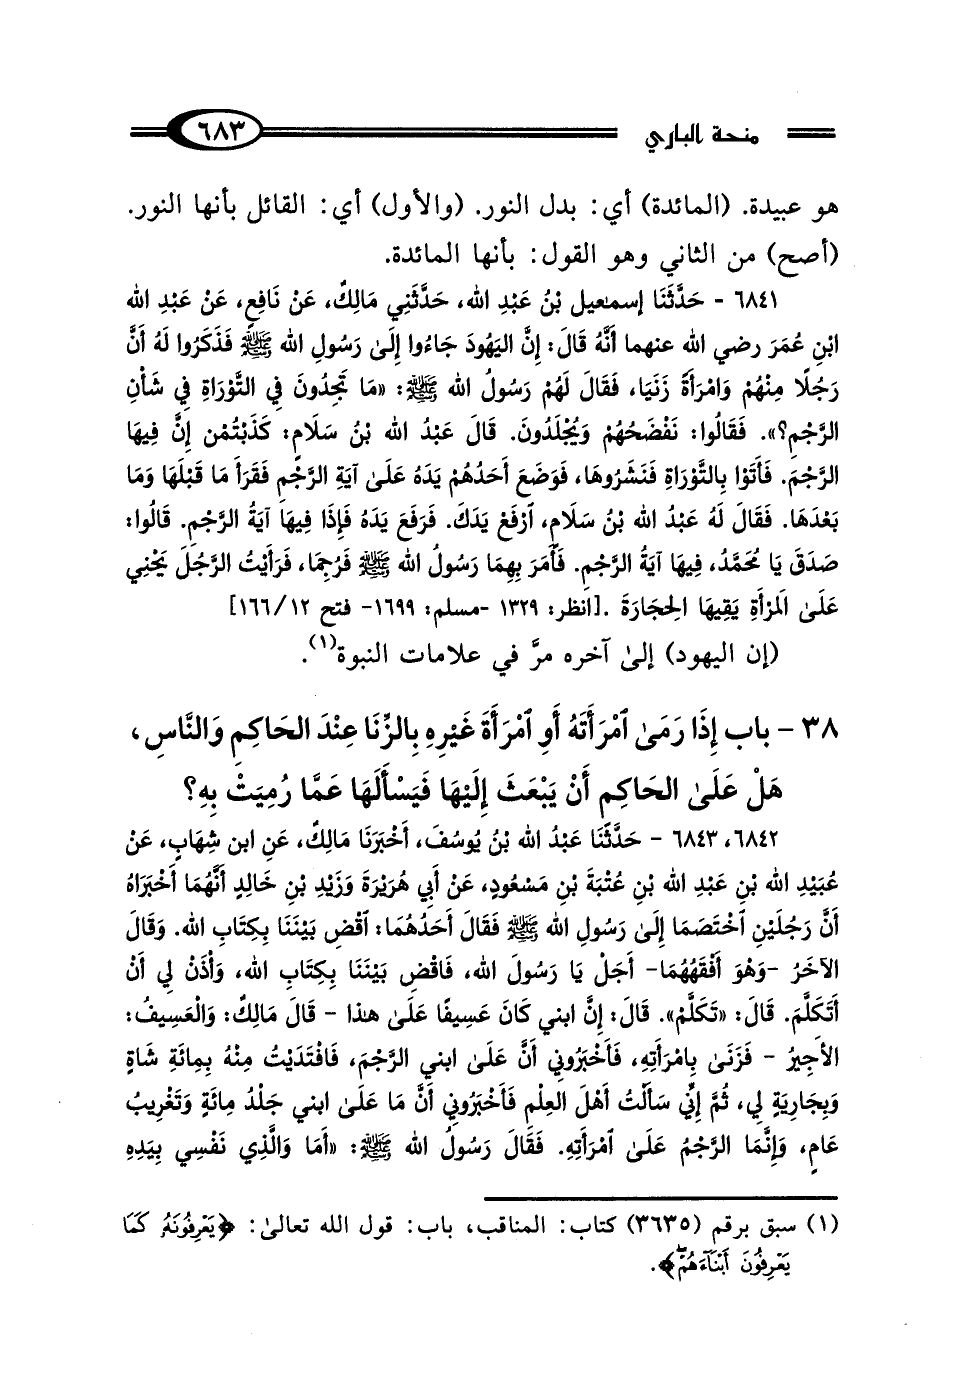 منحة الباري ٦٨٣
هو عبيدة. (المائدة) أي: بدل النور. (والأول) أي: القائل بأنها النور.
(أصح) من الثاني وهو القول: بأنها المائدة.
٦٨٤١ - حَدَّثَنَا إسمعيل بْنُ عَبْدِ الله، حَدَّثَنِي مَالِكٌ، عَنْ نَافِعٍ، عَنْ عَبْدِ الله
ابْنِ عُمَرَ رضي الله عنهما أَنَّهُ قَالَ: إِنَّ اليَهُودَ جَاءُوا إِلَىٰ رَسُولِ الله ﷺ فَذَكَرُوا لَهُ أَنَّ
رَجُلًا مِنْهُمْ وَامْرَأَةً زَنَيَا، فَقَالَ لَهُمْ رَسُولُ الله ﷺ: «مَا تَجِدُونَ فِي التَّوْرَاةِ فِي شَأْنِ
الرَّجْمِ؟». فَقَالُوا: نَفْضَحُهُمْ وَيُجْلَدُونَ. قَالَ عَبْدُ الله بْنُ سَلَامٍ: كَذَبْتُمْ إِنَّ فِيهَا
الرَّجْمَ. فَأَتَوْا بِالتَّوْرَاةِ فَنَشَرُوهَا، فَوَضَعَ أَحَدُهُمْ يَدَهُ عَلَىٰ آيَةِ الرَّجْمِ فَقَرَأَ مَا قَبْلَهَا وَمَا
بَعْدَهَا. فَقَالَ لَهُ عَبْدُ الله بْنُ سَلَامٍ، اَرْفَعْ يَدَكَ. فَرَفَعَ يَدَهُ فَإِذَا فِيهَا آيَةُ الرَّجْمِ. قَالُوا:
صَدَقَ يَا مُحَمَّدُ، فِيهَا آيَةُ الرَّجْمِ. فَأَمَرَ بِهِمَا رَسُولُ الله ﷺ فَرُجِمَا، فَرَأَيْتُ الرَّجُلَ يَحْنِي
عَلَىٰ المَرْأَةِ يَقِيهَا الحِجَارَةَ .[انظر: ١٣٢٩ -مسلم: ١٦٩٩- فتح ١٢/ ١٦٦]
(إن اليهود) إلىٰ آخره مرَّ في علامات النبوة(١).
٣٨ - باب إِذَا رَمَىٰ ٱمْرَأَتَهُ أَوِ ٱمْرَأَةَ غَيْرِهِ بِالزِّنَا عِنْدَ الحَاكِمِ وَالنَّاسِ،
هَلْ عَلَىٰ الحَاكِمِ أَنْ يَبْعَثَ إِلَيْهَا فَيَسْأَلَهَا عَمَّا رُمِيَتْ بِهِ؟
٦٨٤٢، ٦٨٤٣ - حَدَّثَنَا عَبْدُ الله بْنُ يُوسُفَ، أَخْبَرَنَا مَالِكٌ، عَنِ ابن شِهَابٍ، عَنْ
عُبَيْدِ الله بْنِ عَبْدِ الله بْنِ عُتْبَةَ بْنِ مَسْعُودٍ، عَنْ أَبِي هُرَيْرَةَ وَزَيْدِ بْنِ خَالِدٍ أَنَّهُمَا أَخْبَرَاهُ
أَنَّ رَجُلَيْنِ ٱخْتَصَمَا إِلَىٰ رَسُولِ الله ﷺ فَقَالَ أَحَدُهُمَا: ٱقْضِ بَيْنَنَا بِكِتَابِ الله. وَقَالَ
الآخَرُ -وَهْوَ أَفْقَهُهُمَا- أَجَلْ يَا رَسُولَ الله، فَاقْضِ بَيْنَنَا بِكِتَابِ الله، وَأْذَنْ لِي أَنْ
أَتَكَلَّمَ. قَالَ: «تَكَلَّمْ». قَالَ: إِنَّ ابني كَانَ عَسِيفًا عَلَىٰ هذا - قَالَ مَالِكٌ: وَالْعَسِيفُ:
الأَجِيرُ - فَزَنَىٰ بِامْرَأَتِهِ، فَأَخْبَرُونِي أَنَّ عَلَىٰ ابني الرَّجْمَ، فَافْتَدَيْتُ مِنْهُ بِمِائَةِ شَاةٍ
وَبِجَارِيَةٍ لِي، ثُمَّ إِنِّي سَأَلْتُ أَهْلَ العِلْمِ فَأَخْبَرُونِي أَنَّ مَا عَلَىٰ ابني جَلْدُ مِائَةٍ وَتَغْرِيبُ
عَامٍ، وَإِنَّمَا الرَّجْمُ عَلَىٰ ٱمْرَأَتِهِ. فَقَالَ رَسُولُ الله ﷺ: «أَمَا وَالَّذِي نَفْسِي بِيَدِهِ
(١) سبق برقم (٣٦٣٥) كتاب: المناقب، باب: قول الله تعالىٰ: ﴿يَعْرِفُونَهُۥ كَمَا
يَعْرِفُونَ أَبْنَآءَهُمْۖ﴾.